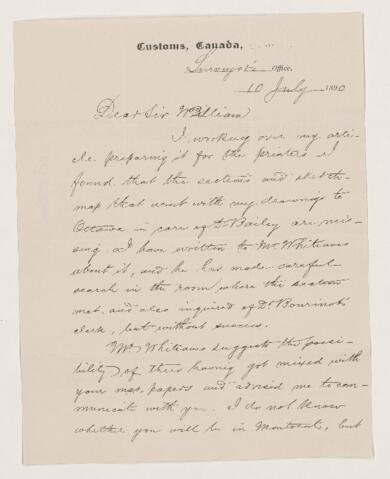 Customs, Canada,
Surveyor's Office.
10 July 1890
Dear Sir William
I working over my arti-
cle preparing it for the printers I
found that the sections and sketch-
map that went with my drawings to
Ottawa in care of Dr Bailey are mis-
sing. I have written to Mr Whiteaves
about it, and he has made careful
search in the room where the section
met and also inquired of Dr Bourinot's
clerk, but without success.
Mr Whiteaves suggests the possi-
bility of their having got mixed with
your mss. papers and advised me to com-
municate with you. I do not know
whether you will be in Montreal, but